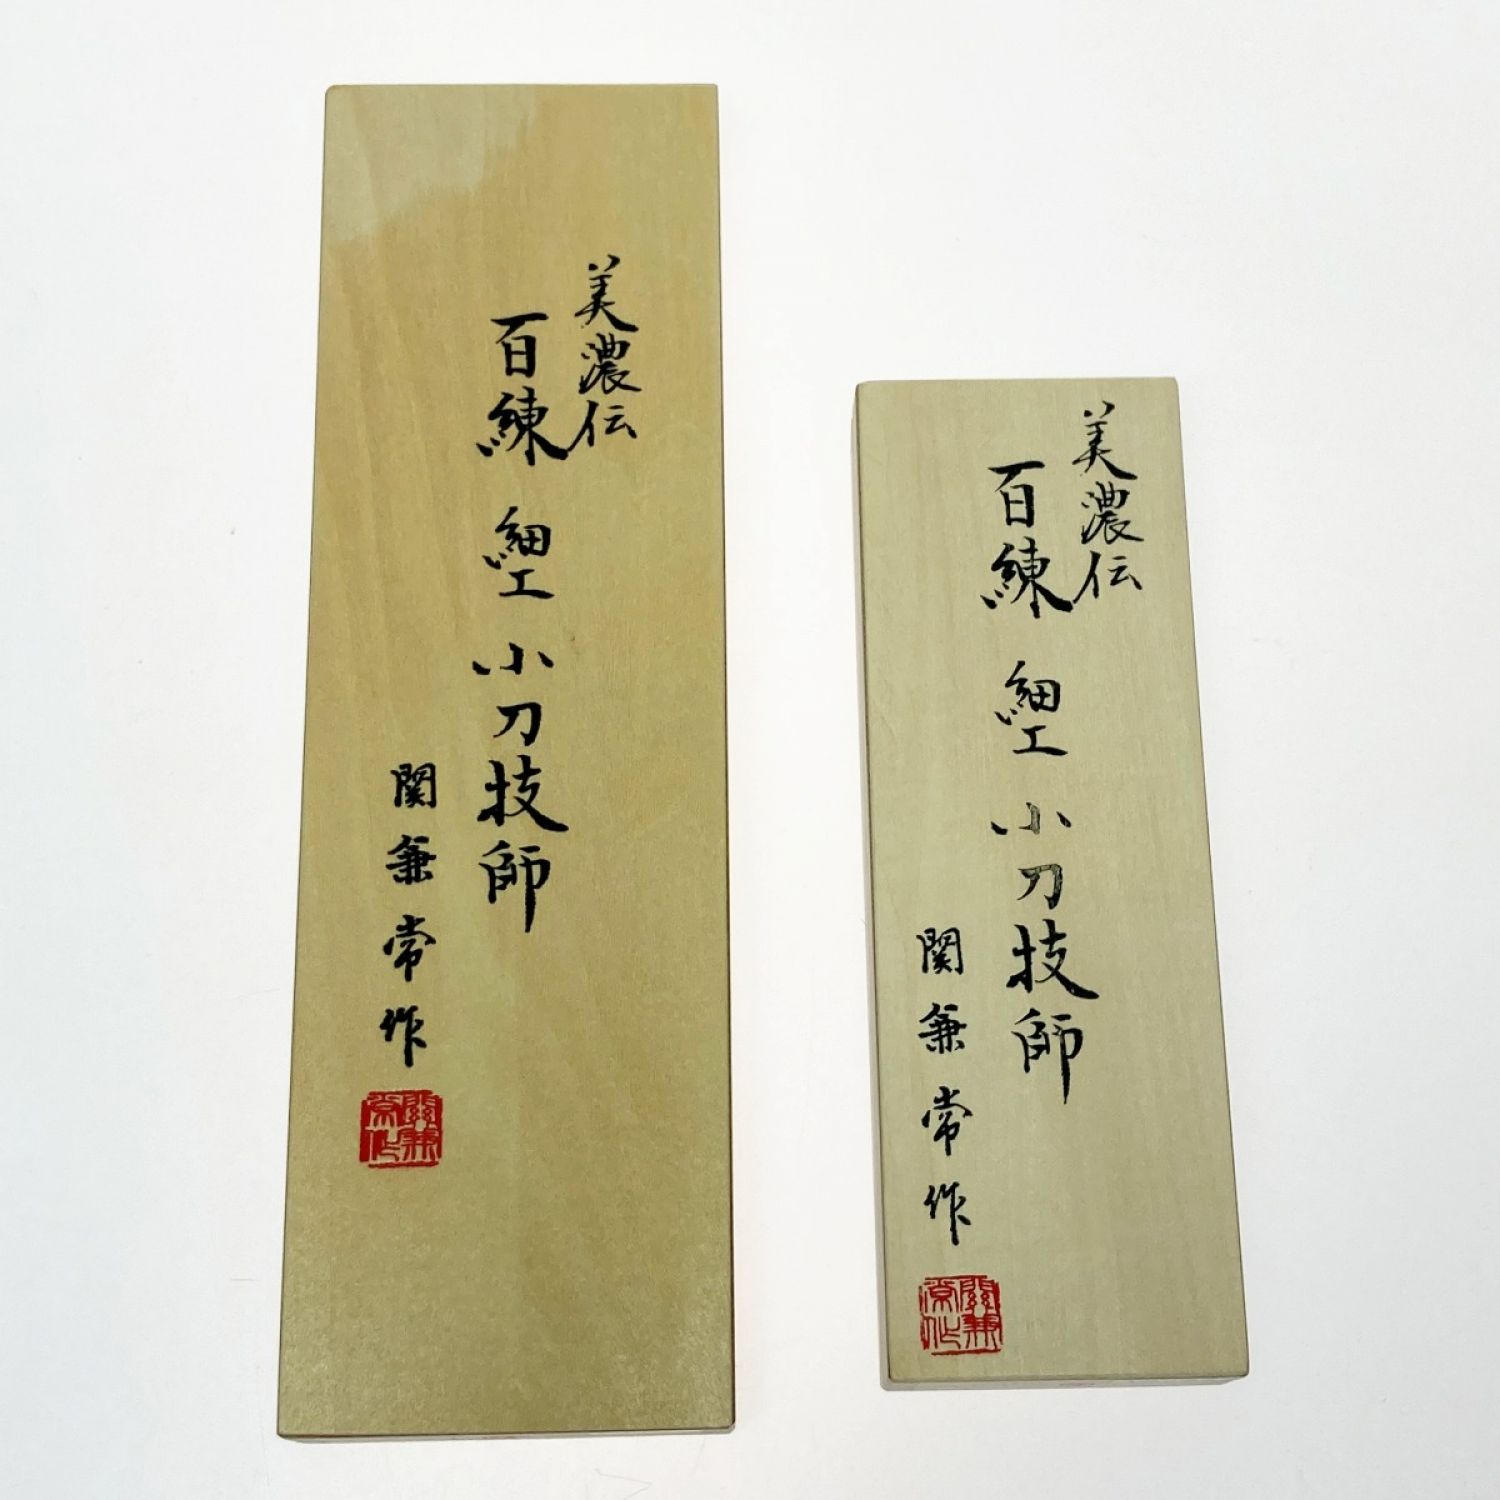 美濃伝
百練 細工 小刀技師
関兼常作
關兼
常作
美濃伝
百練 細工 小刀技師
関兼常作
關兼
常作